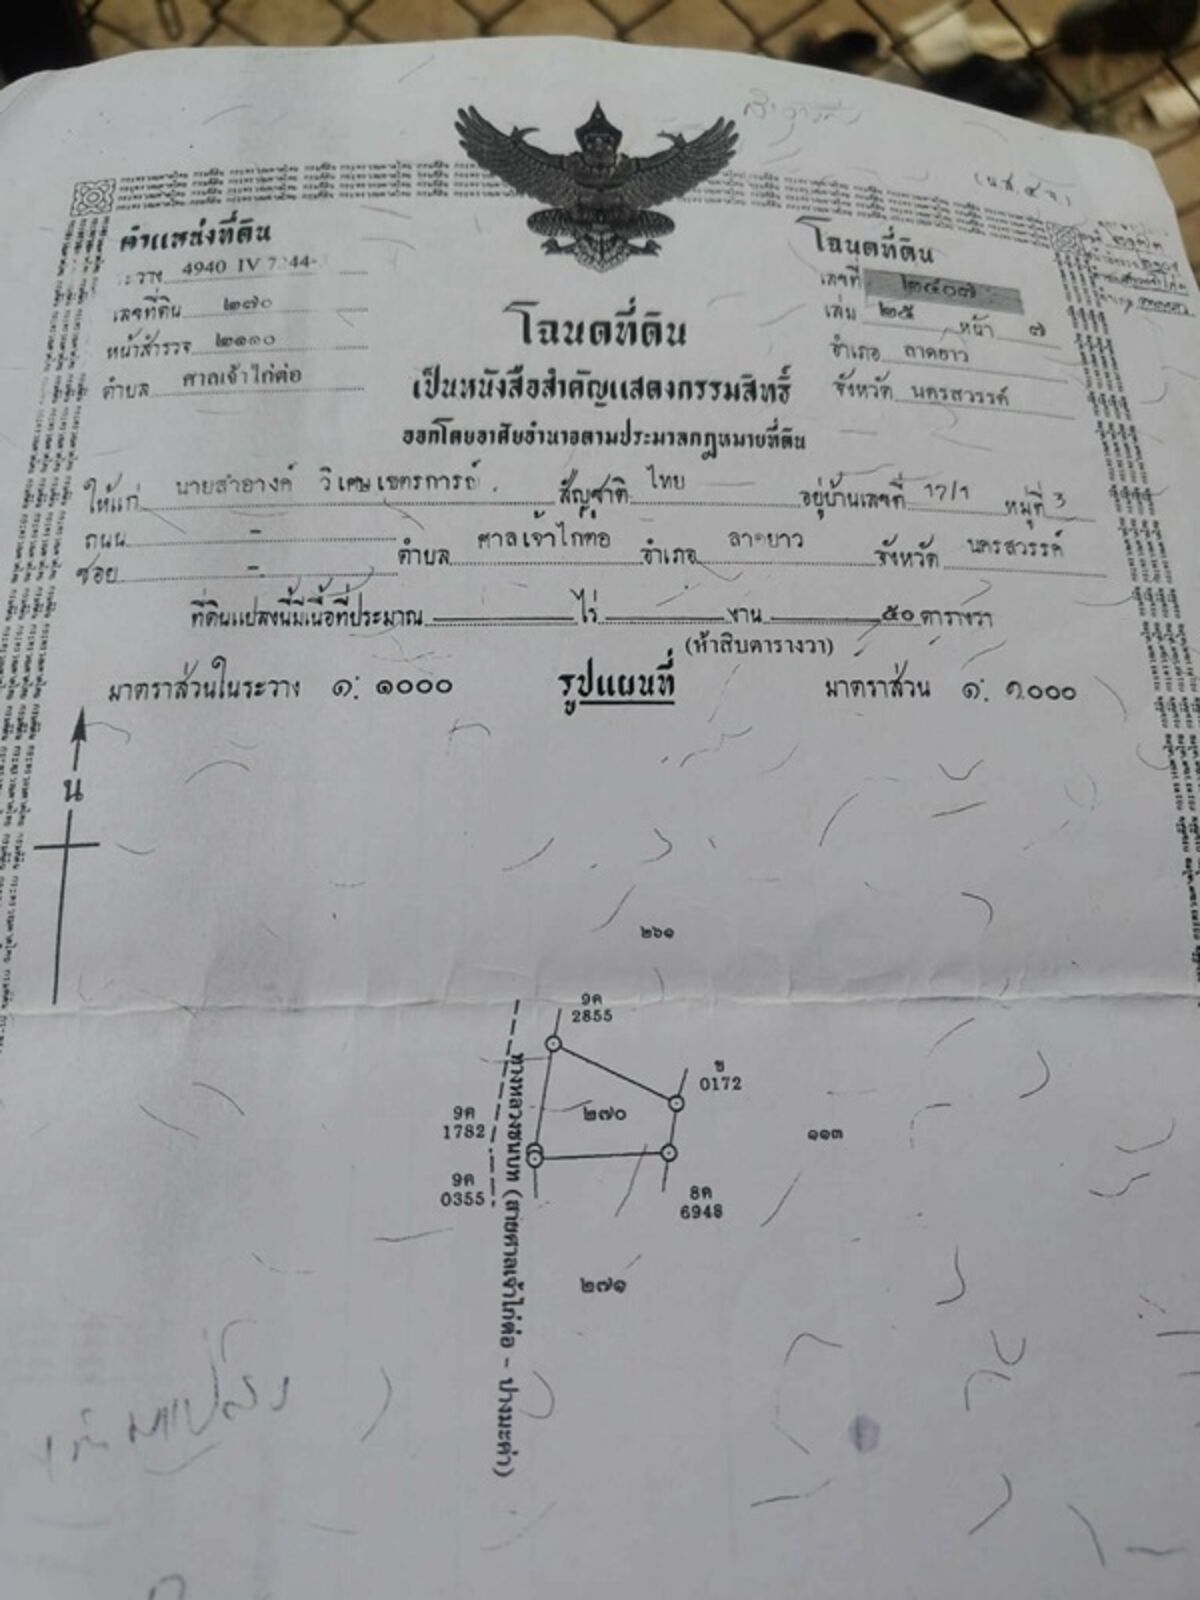 (น.ส.๔ จ.)
ตำแหน่งที่ดิน
ระวาง 4940 IV
เลขที่ดิน ๒๗๐
หน้าสำรวจ ๒๑๑๐
ตำบล ศาลเจ้าไก่ต่อ
โฉนดที่ดิน
เลขที่ ๒๕๔๐๗
เล่ม ๒๕ หน้า ๗
อำเภอ ลาดยาว
จังหวัด นครสวรรค์
โฉนดที่ดิน
เป็นหนังสือสำคัญแสดงกรรมสิทธิ์
ออกโดยอาศัยอำนาจตามประมวลกฎหมายที่ดิน
ให้แก่ นายสำอางค์ วิเศษเขตรการณ์ สัญชาติ ไทย อยู่บ้านเลขที่ 17/1 หมู่ที่ 3
ถนน -
ซอย - ตำบล ศาลเจ้าไก่ต่อ อำเภอ ลาดยาว จังหวัด นครสวรรค์
ที่ดินแปลงนี้มีเนื้อที่ประมาณ ไร่ งาน ๕๐ ตารางวา
(ห้าสิบตารางวา)
มาตราส่วนในระวาง ๑: ๑๐๐๐ รูปแผนที่ มาตราส่วน ๑: ๑๐๐๐
น
๒๖๑
9ค
2855
ซ
0172
๒๗๐
9ค
1782
๑๑๓
9ค
0355
8ค
6948
๒๗๑
ทางหลวงชนบท (สายศาลเจ้าไก่ต่อ - ปางมะค่า)